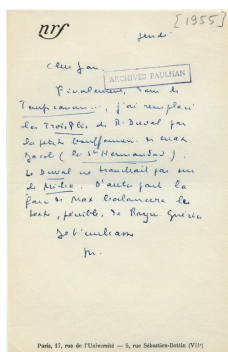 nrf
[1955]
jeudi
cher Jean,
ARCHIVES PAULHAN
Finalement, dans le
Temps comme , j'ai remplacé
les Trois Plis de R. Duval par
la petite bouffonnerie de Max
Jacob (la Ste Hermandad).
Le Duval ne tranchait pas sur
le Milio. D'autre part la
farce de Max balancera le
texte, pénible, de Raym. Guérin
Je t'embrasse
M.
Paris, 17, rue de l'Université — 5, rue Sébastien-Bottin (VIIe)